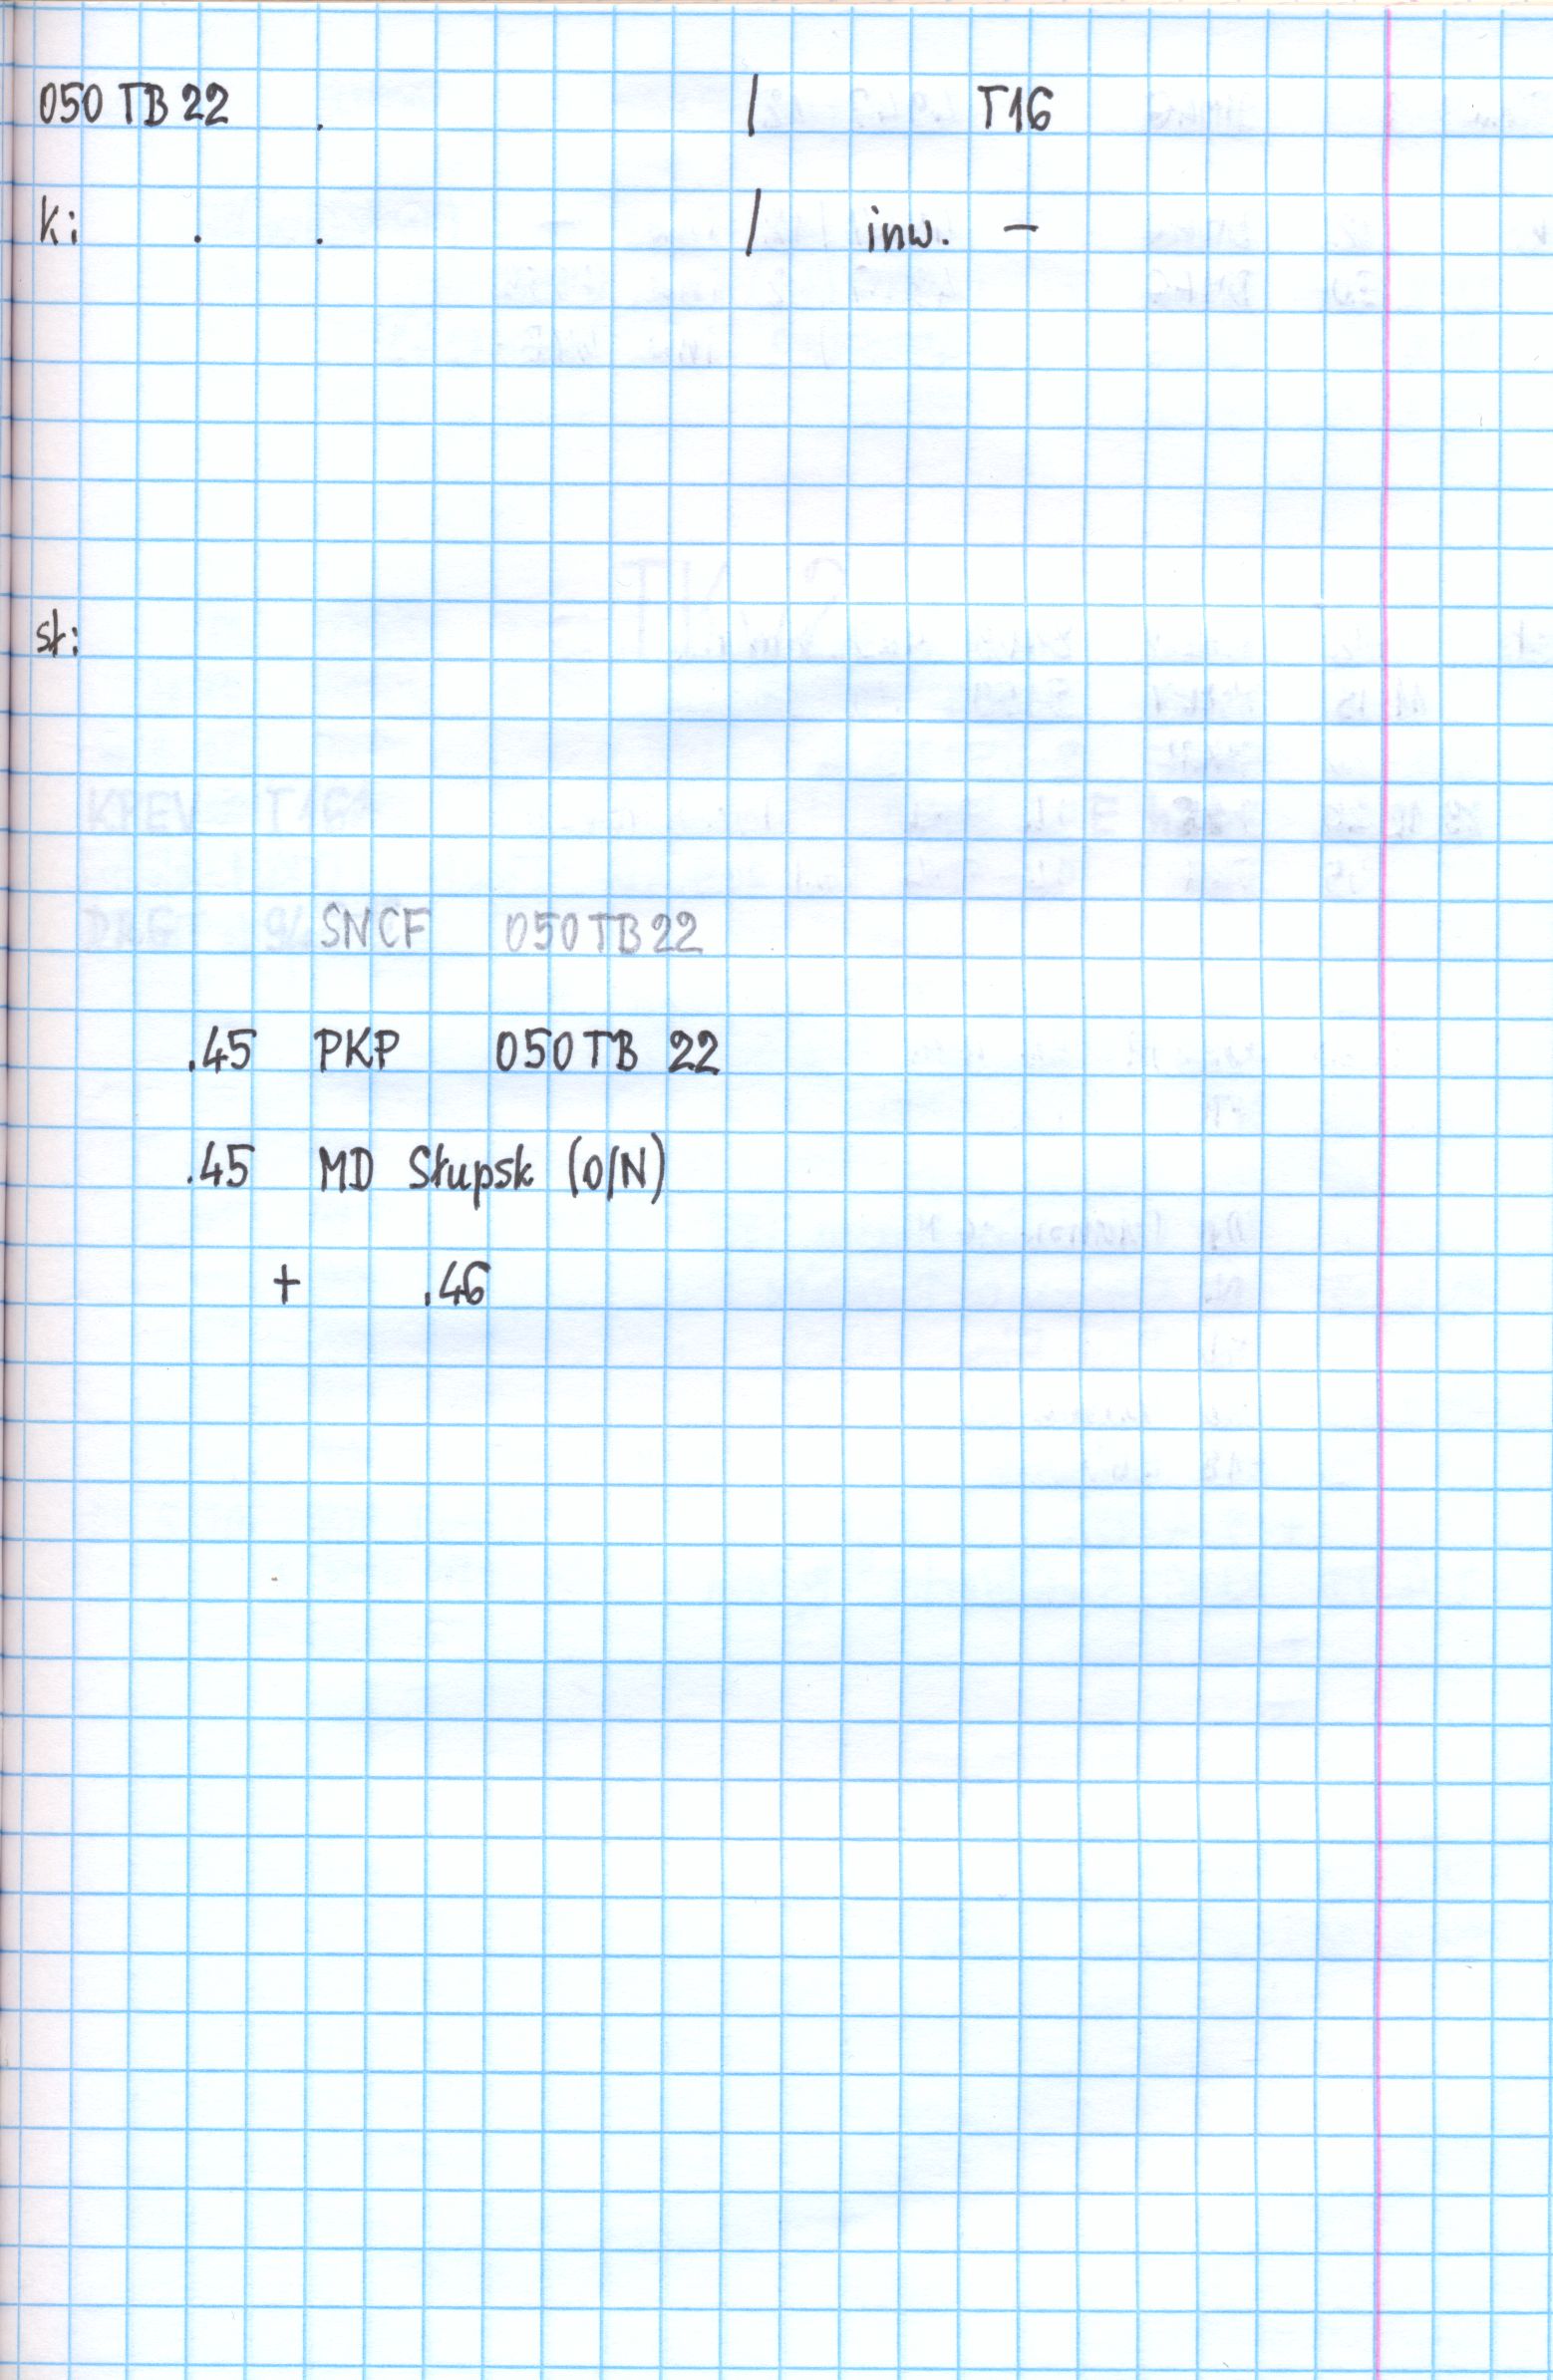 050 TB 22 . / T16
Ki . . / inw. –
st:
KPEV T16¹
SNCF 050 TB 22
.45 PKP 050 TB 22
.45 MD Słupsk (O/N)
+ .46